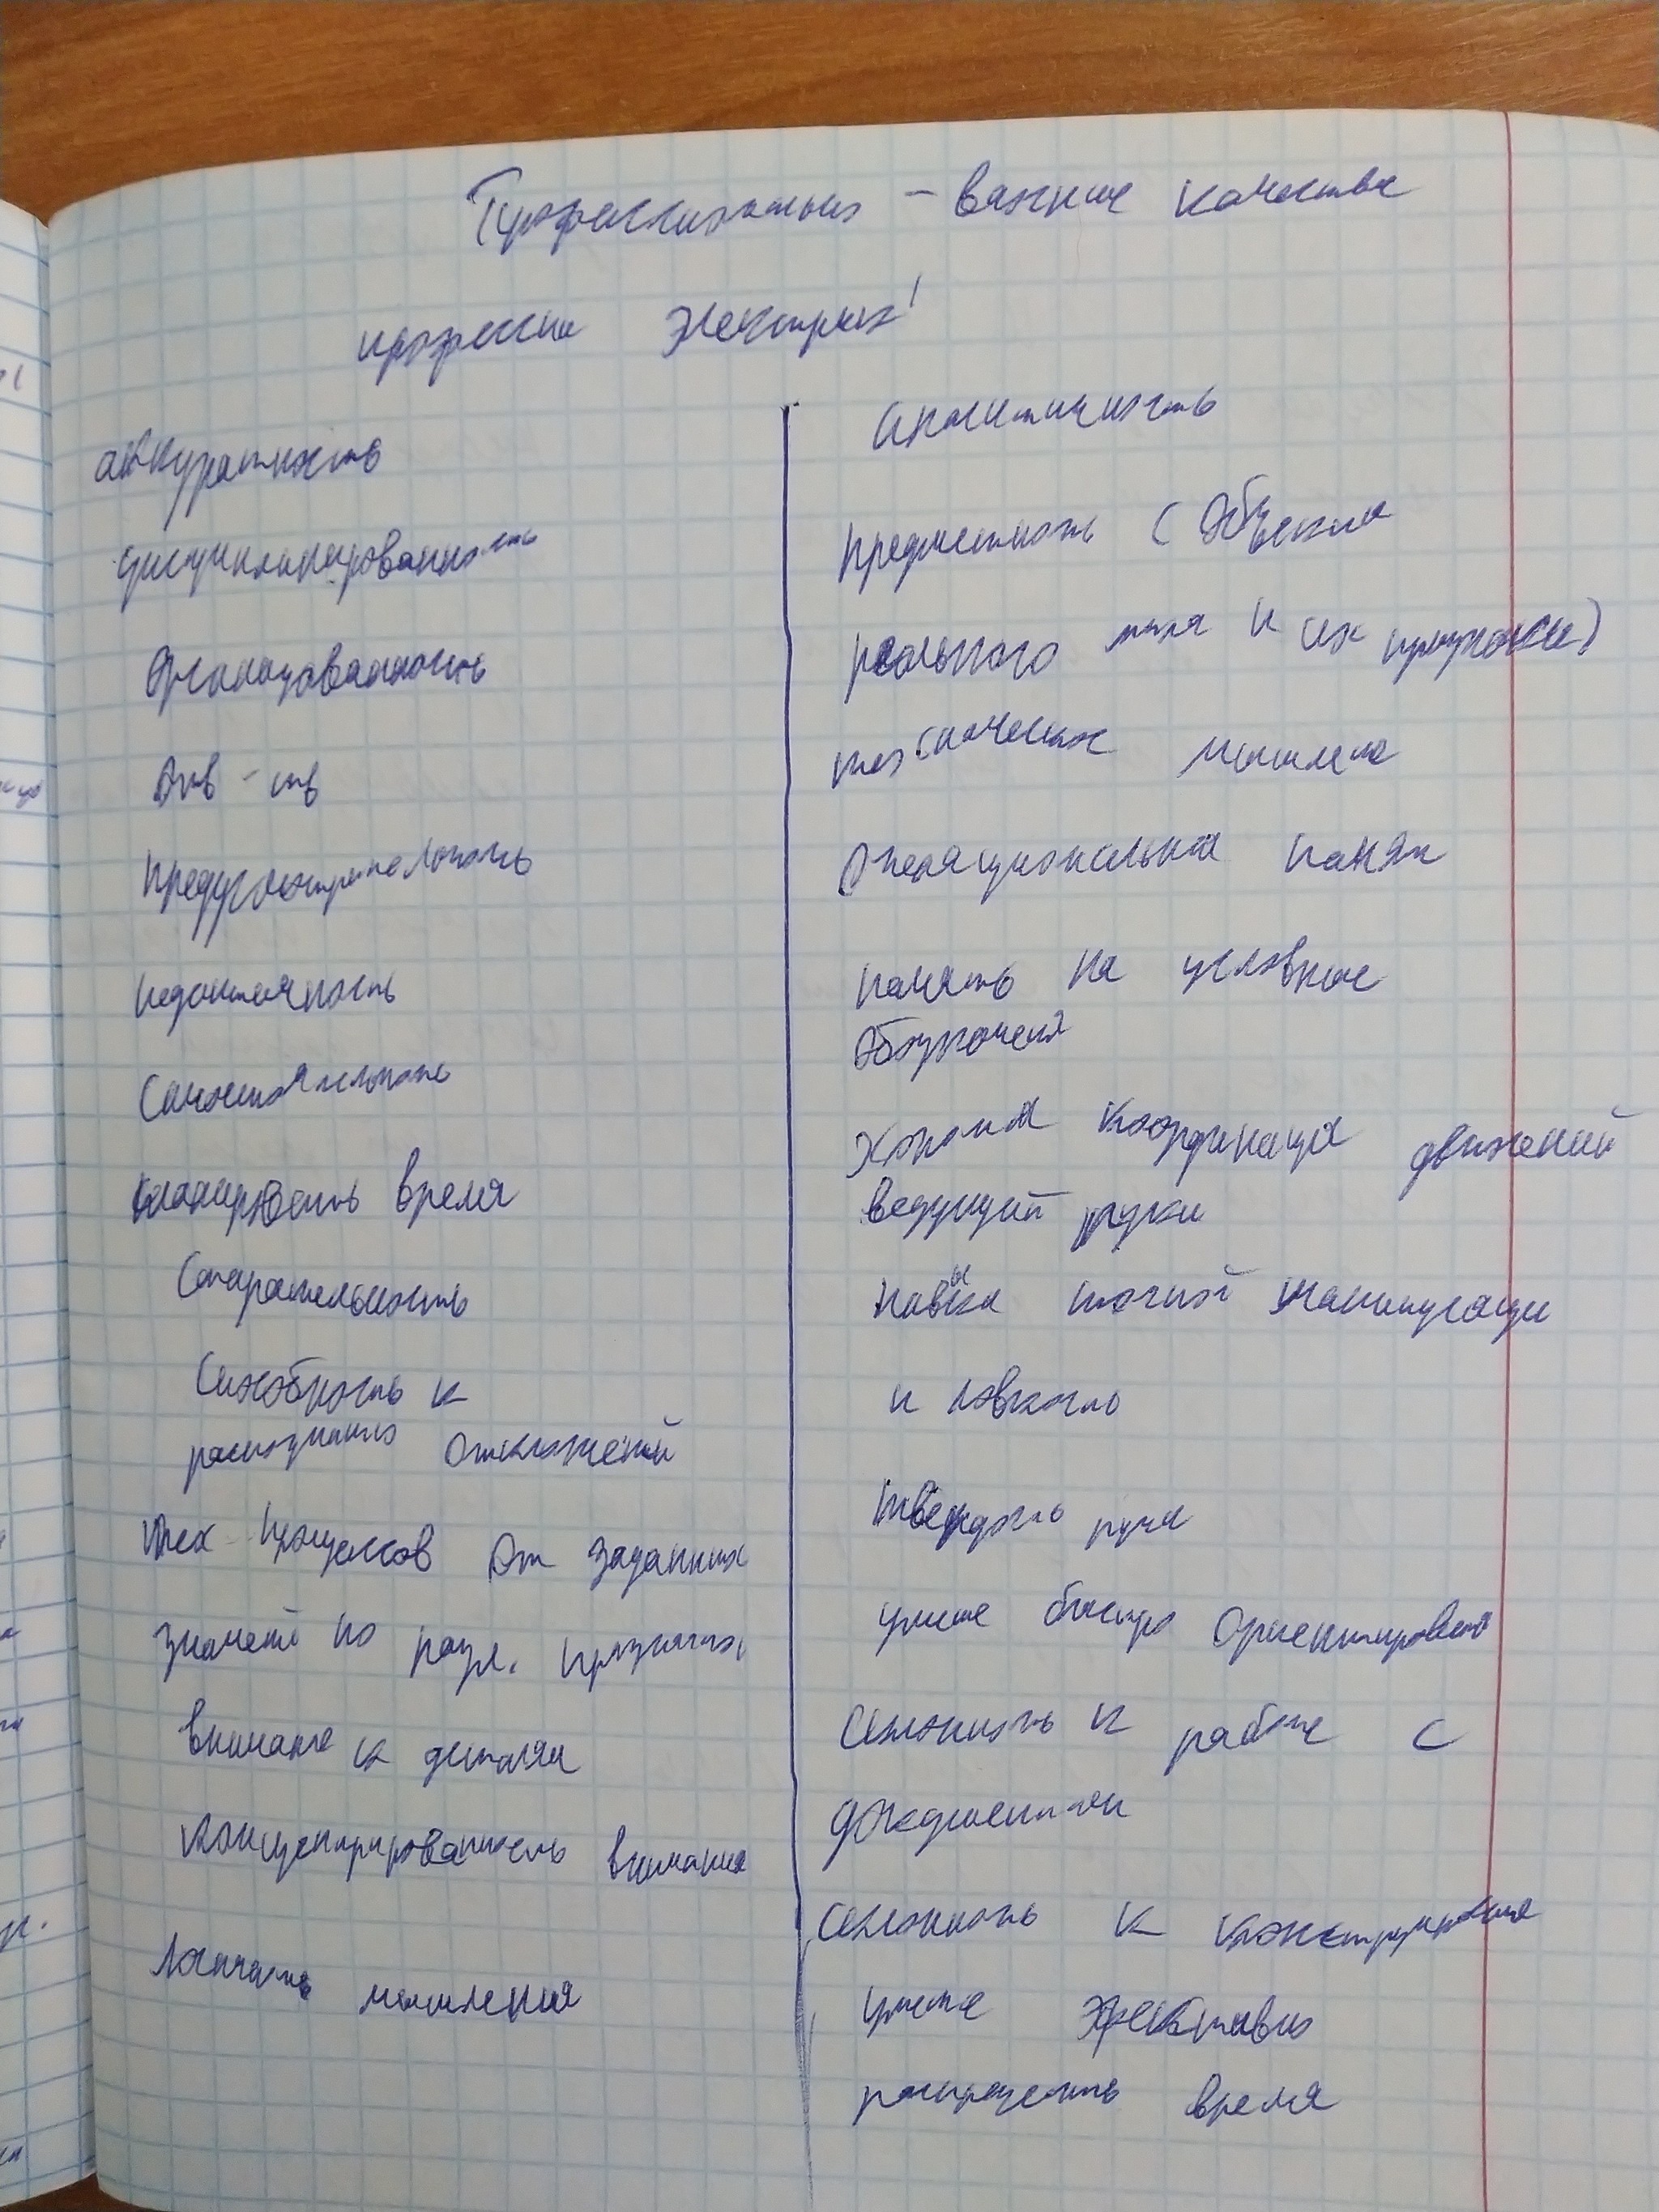 Профессионально - важные качества
профессии Электрик!
аккуратность
дисциплинированность
Организованность
Отв - ть
предусмотрительность
педантичность
Самостоятельность
планировать время
Старательность
Способность к
распознанию отклонений
тех процессов от заданных
значений по разл. признакам
внимание к деталям
Концентрированность внимания
Логичность мышления
Аналитичность
предметность (Объекты
реального мира и их признаки)
техническое мышление
Операциональная память
память на условные
Обозначения
Хорошая координация движений
ведущей руки
навыки точной манипуляции
и ловкость
твердость руки
умение быстро Ориентироваться
Склонность к работе с
документами
Склонность к конструированию
умение эффективно
распределить время